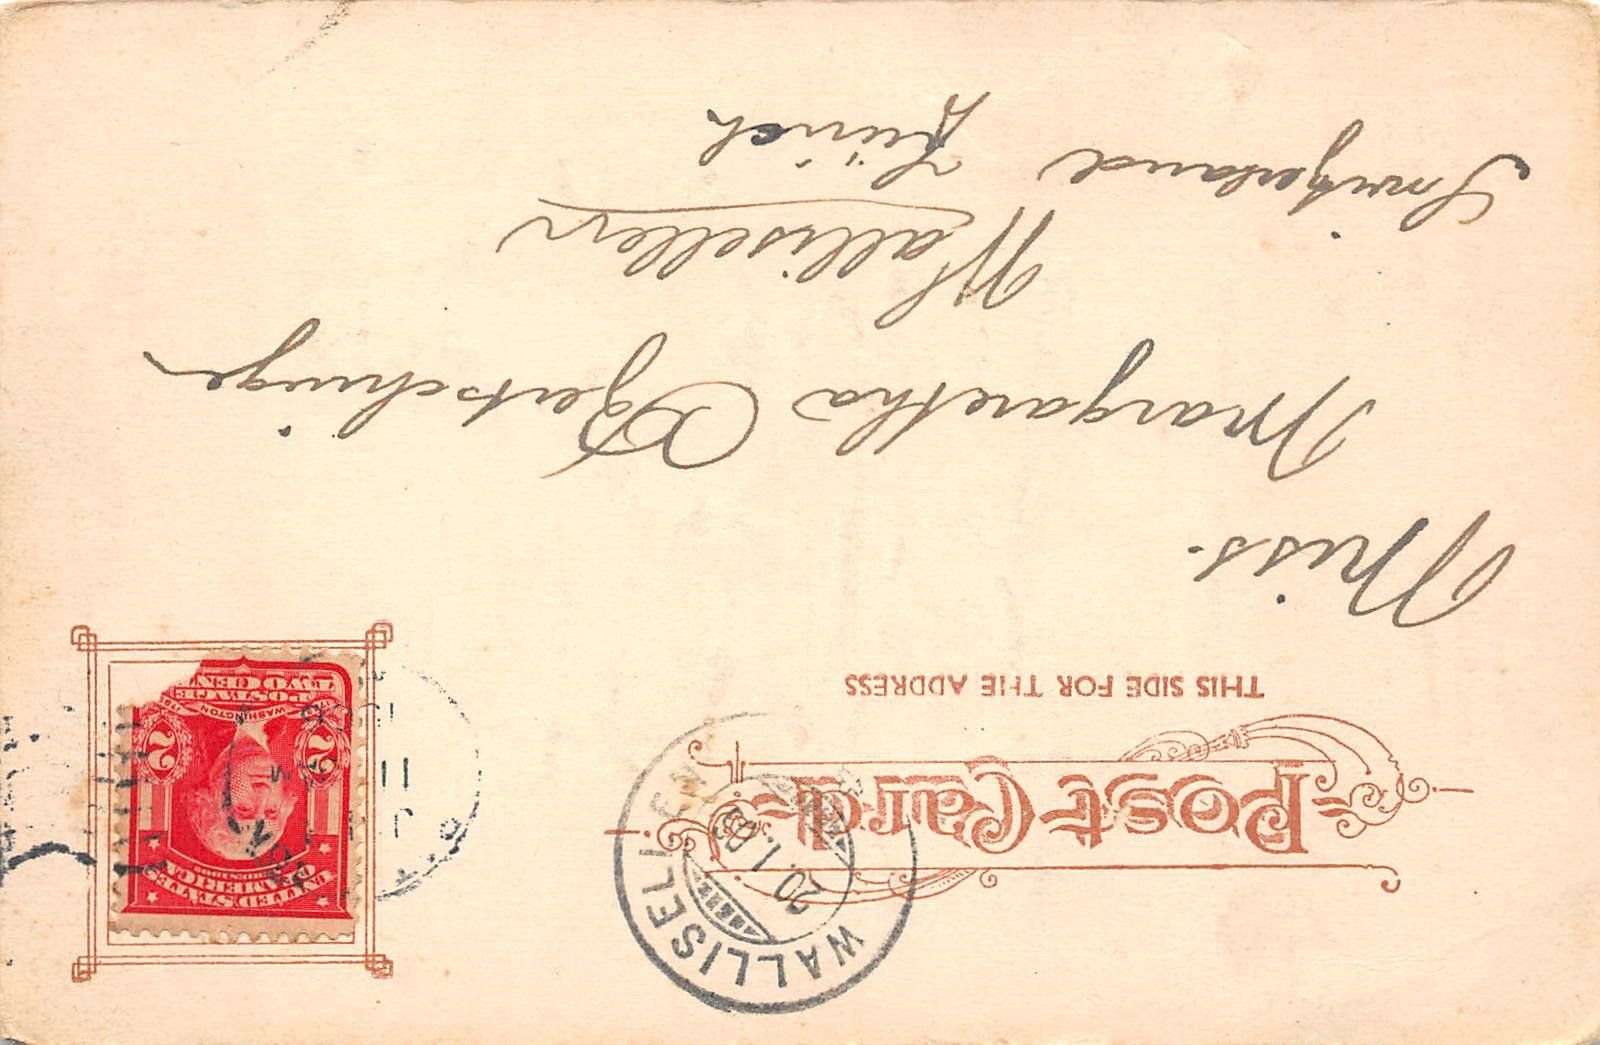 Post Card
THIS SIDE FOR THE ADDRESS
UNITED STATES
OF AMERICA
2 2
WASHINGTON
POSTAGE
TWO CEN
WALLISELLEN
20.I.05
Miss.
Margaretha Bertschinger
Wallisellen
Switzerland Zürich